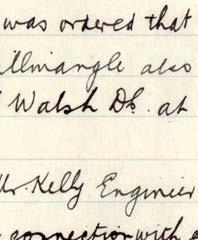 was ordered that
illinangle also
Walsh Dk. at
Mr. Kelly Engineer
connection with